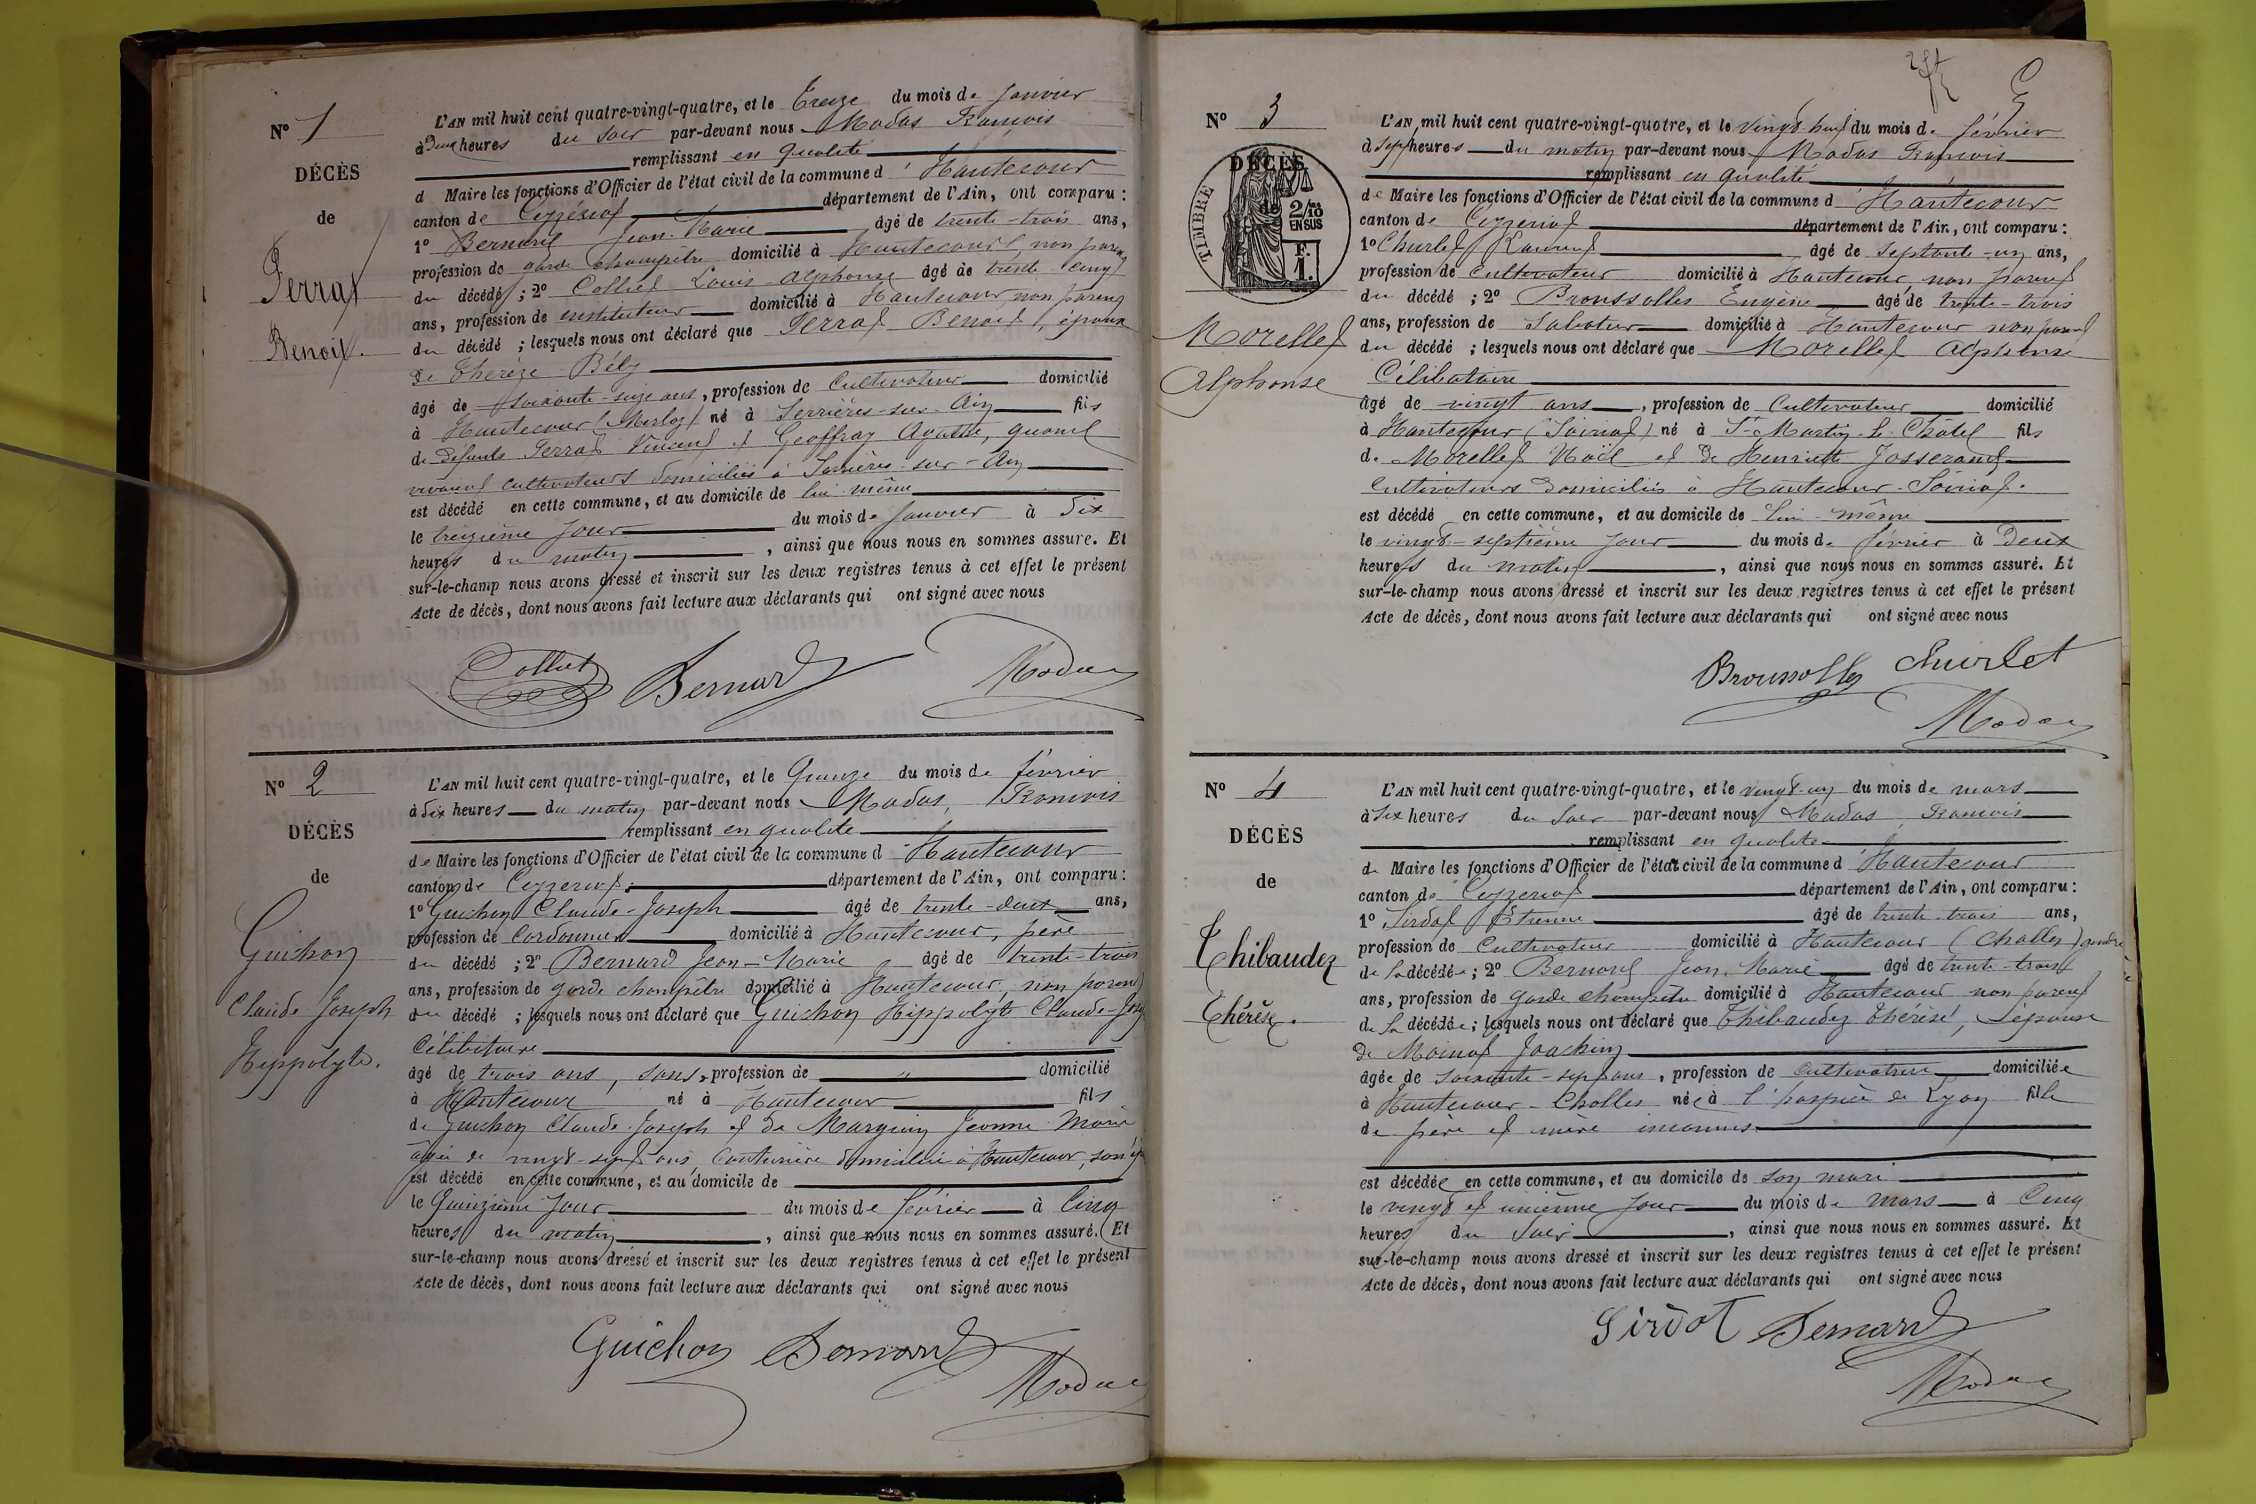 N° 1
DÉCÈS
de
Ferrat
Benoit.
L'AN mil huit cent quatre-vingt-quatre, et le Treize du mois de Janvier
à Deux heures du soir par-devant nous Modas François
remplissant en qualité
d Maire les fonctions d'Officier de l'état civil de la commune d'Hautecour
canton de Ceyzériat département de l'Ain, ont comparu :
1° Bernard Jean-Marie âgé de trente-trois ans,
profession de garde champêtre domicilié à Hautecourt non parent
du décédé ; 2° Colliet Louis Alphonse âgé de trente cinq
ans, profession de instituteur domicilié à Hautecour non parent
du décédé ; lesquels nous ont déclaré que Ferrat Benoit, époux
de Thérèze Béby
âgé de soixante-seize ans, profession de Cultivateur domicilié
à Hautecour (Merloz) né à Serrières-sur-Ain fils
de Défunts Ferrat Vincent et Geoffray Agathe, quand
vivaient cultivateurs domiciliés à Serrières-sur-Ain
est décédé en cette commune, et au domicile de lui même
le treizième jour du mois de Janvier à Dix
heures du matin, ainsi que nous nous en sommes assuré. Et
sur-le-champ nous avons dressé et inscrit sur les deux registres tenus à cet effet le présent
Acte de décès, dont nous avons fait lecture aux déclarants qui ont signé avec nous
Colliet Bernard Modas
N° 2
DÉCÈS
de
Guichon
Claude Joseph
Hippolyte.
L'AN mil huit cent quatre-vingt-quatre, et le Quinze du mois de février
à Dix heures du matin par-devant nous Modas, François
remplissant en qualité
de Maire les fonctions d'Officier de l'état civil de la commune d'Hautecour
canton de Ceyzeriat département de l'Ain, ont comparu :
1° Guichon Claude-Joseph âgé de trente-deux ans,
profession de Cordonnier domicilié à Hautecour, père
du décédé ; 2° Bernard Jean-Marie âgé de trente-trois
ans, profession de garde champêtre domicilié à Hautecour, non parent
du décédé ; lesquels nous ont déclaré que Guichon Hippolyte Claude-Josep
Célibataire
âgé de trois ans, sans profession de " domicilié
à Hautecour né à Hautecour fils
de Guichon Claude-Joseph et de Marguin Jeanne Marie
âgée de vingt-sept ans, Couturière domiciliée à Hautecour, son ép
est décédé en cette commune, et au domicile de
le Quinzième jour du mois de février à Cinq
heures du matin, ainsi que nous nous en sommes assuré. Et
sur-le-champ nous avons dressé et inscrit sur les deux registres tenus à cet effet le présent
Acte de décès, dont nous avons fait lecture aux déclarants qui ont signé avec nous
Guichon Bernard Modas
N° 3
DÉCÈS
de
TIMBRE
2/10
EN SUS
F.
1.
Morellet
Alphonse
L'AN mil huit cent quatre-vingt-quatre, et le vingt-huit du mois de février
à Sept heures du matin par-devant nous Modas François
remplissant en qualité
de Maire les fonctions d'Officier de l'état civil de la commune d'Hautecour
canton de Ceyzeriat département de l'Ain, ont comparu :
1° Churlet âgé de septante-un ans,
profession de Cultivateur domicilié à Hautecour, non parent
du décédé ; 2° Broussolles Eugène âgé de trente-trois
ans, profession de Sabotier domicilié à Hautecour non parent
du décédé ; lesquels nous ont déclaré que Morellet Alphonse
Célibataire
âgé de vingt ans, profession de Cultivateur domicilié
à Hautecour (Soiriat) né à St-Martin-le-Chatel fils
de Morellet Noël et de Henriette Josserand
Cultivateurs domiciliés à Hautecour-Soiriat.
est décédé en cette commune, et au domicile de lui-même
le vingt-septième jour du mois de février à Deux
heures du matin, ainsi que nous nous en sommes assuré. Et
sur-le-champ nous avons dressé et inscrit sur les deux registres tenus à cet effet le présent
Acte de décès, dont nous avons fait lecture aux déclarants qui ont signé avec nous
Broussolles Churlet
Modas
N° 4
DÉCÈS
de
Thibaudez
Thérèse.
L'AN mil huit cent quatre-vingt-quatre, et le vingt-un du mois de mars
à Six heures du Soir par-devant nous Modas, François
remplissant en qualité
de Maire les fonctions d'Officier de l'état civil de la commune d'Hautecour
canton de Ceyzeriat département de l'Ain, ont comparu :
1° Sirdot Etienne âgé de trente-trois ans,
profession de Cultivateur domicilié à Hautecour (Challes) gendre
de la décédée ; 2° Bernard Jean-Marie âgé de trente-trois
ans, profession de garde champêtre domicilié à Hautecour non parent
de la décédée ; lesquels nous ont déclaré que Thibaudez Thérèse, Épouse
de Moinat Joachim
âgée de soixante-sept ans, profession de Cultivatrice domiciliée
à Hautecour-Challes née à l'hospice de Lyon fille
de père et mère inconnus
est décédée en cette commune, et au domicile de son mari
le vingt et unième jour du mois de mars à Cinq
heures du Soir, ainsi que nous nous en sommes assuré. Et
sur-le-champ nous avons dressé et inscrit sur les deux registres tenus à cet effet le présent
Acte de décès, dont nous avons fait lecture aux déclarants qui ont signé avec nous
Sirdot Bernard
Modas